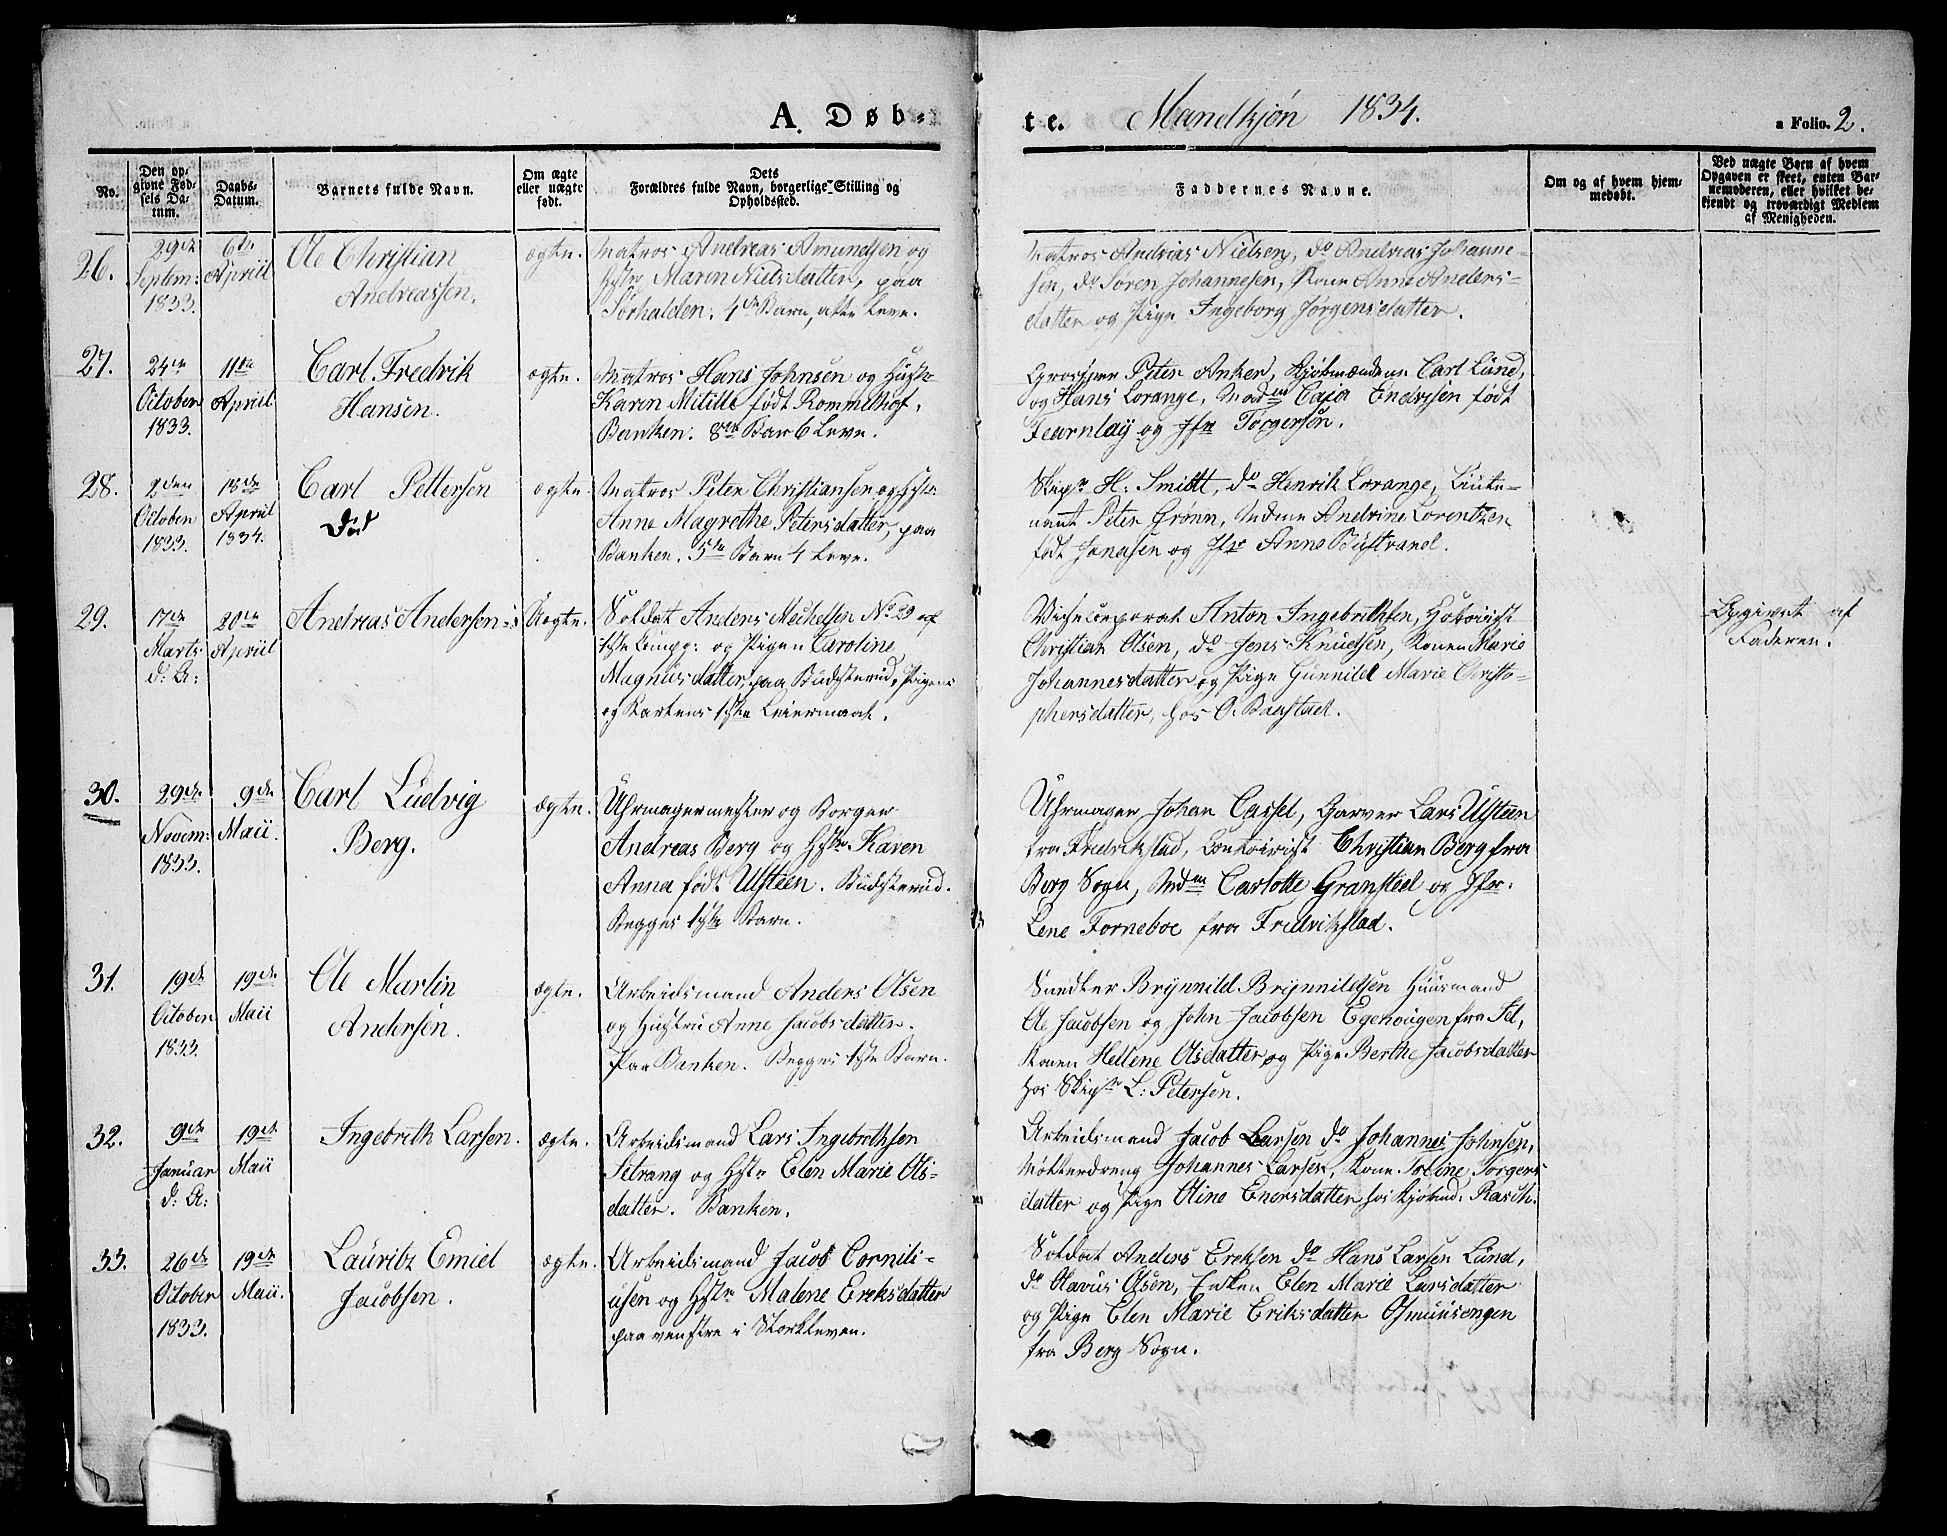 A. Døb-
te. Mandkjøn 1834. a Folio. 2.
No.
Den op-
givne Fød-
sels Da-
tum.
Daabs-
Datum.
Barnets fulde Navn.
Om ægte
eller uægte
født.
Dets
Forældres fulde Navn, borgerlige Stilling og
Opholdssted.
Faddernes Navne.
Om og af hvem hjem-
medøbt.
Ved uægte Børn af hvem
Opgaven er skeet, enten Bar-
nemoderen, eller hvilket be-
kjendt og troværdigt Medlem
af Menigheden.
26.
29de
Septem:
1833.
6te
Apriil
Ole Christian
Andreassen.
ægte.
Matros Andreas Amundsen og
Hstr Maren Nielsdatter, paa
Sørhalden. 4de Barn, alle Leve.
Matros Andreas Nielsen, do Andreas Johanne-
sen, do Søren Johannesen, Kone Anne Anders-
datter og Pige Ingeborg Jørgensdatter.
27.
24de
October
1833.
11te
Apriil
Carl Fredrik
Hansen.
ægte.
Matros Hans Johnsen og Hustr
Karen Mitille født Rommelhof,
Banken. 8de Bar 6 Leve.
Grosserer Peter Anker, Kjøbmændene Carl Lund,
og Hans Lorange, Madm Caja Endresen født
Fearnlay og Jfr Torgersøn.
28.
2den
October
1833.
18de
Apriil
1834.
Carl Pettersen
Død
ægte.
Matros Peter Christiansen og Hstr.
Anne Magrethe Petersdatter, paa
Banken. 5te Barn 4 Leve.
Skipr H. Smidt, do Henrik Lorange, Lieute-
nant Peter Grønn, Mdme Andrine Lorentzen
født Jonasen og Jfr Anne Bustrand.
29.
17de
Marts
d: A:
20de
Apriil
Andreas Andersen
Uægte.
Soldat Anders Mechelsen No 29 af
1ste Comp: og Pigen Caroline
Magnusdatter, paa Budsterud, Pigens
og Karlens 1ste Leiermaal.
Vicecorporal Anton Ingebrethsen,
Christian Olsen, do Jens Knudsen, Konen Marie
Johannesdatter og Pige Gunnild Marie Christo-
phersdatter, hos O. Baastad.
Opgivet af
Faderen.
30.
29de
Novem:
1833.
9de
Maii.
Carl Ludvig
Berg.
ægte.
Uhrmagermester og Borger
Andreas Berg og Hstr Karen
Anna født Ulsteen. Budsterud.
Begges 1ste Barn.
Uhrmager Johan Cassel, Garver Lars Ulsteen
fra Fredrikstad, Contoirist Christian Berg fra
Berg Sogn, Mdm Carlotte Gransteel og Jfr.
Lene Forneboe fra Fredrikstad.
31.
19de
October
1833.
19de
Maii
Ole Martin
Andersen.
ægte.
Arbeidsmand Anders Olsen
og Hustru Anne Jacobsdatter.
Paa Banken. Begges 1ste Barn.
Snedker Brynnild Brynnildsen Huusmand
Ole Jacobsen og John Jacobsen Egehougen fra Id,
Konen Hellene Olsdatter og Pige Berthe Jacobsdatter
hos Skipr L: Petersen.
32.
9de
Januar
d: A:
19de
Maii
Ingebrith Larsen.
ægte.
Arbeidsmand Lars Ingebrethsen
Selrang og Hstr Elen Marie Ols-
datter. Banken.
Arbeidsmand Jacob Larsen do Johannes Johnsen,
Møllerdreng Johannes Larsen, Kone Toline Torgers
datter og Pige Oline Enersdatter hos Kjøbmd. Rasch.
33.
26de
October
1833.
19de
Maii.
Lauritz Emiel
Jacobsen.
ægte.
Arbeidsmand Jacob Cornili-
usen og Hstr Malene Ereksdatter
paa venstre i Storkleven.
Soldat Anders Ereksen do Hans Larsen Lund,
do Olavus Olsen, Enken Elen Marie Larsdatter
og Pige Elen Marie Eriksdatter Osmunsengen
fra Berg Sogn.